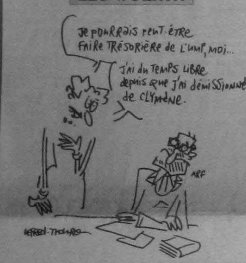 JE POURRAIS PEUT-ÊTRE
FAIRE TRÉSORIÈRE DE L'UMP, MOI...
J'AI DU TEMPS LIBRE
DEPUIS QUE J'AI DÉMISSIONNÉ
DE CLYMÈNE.
ARF